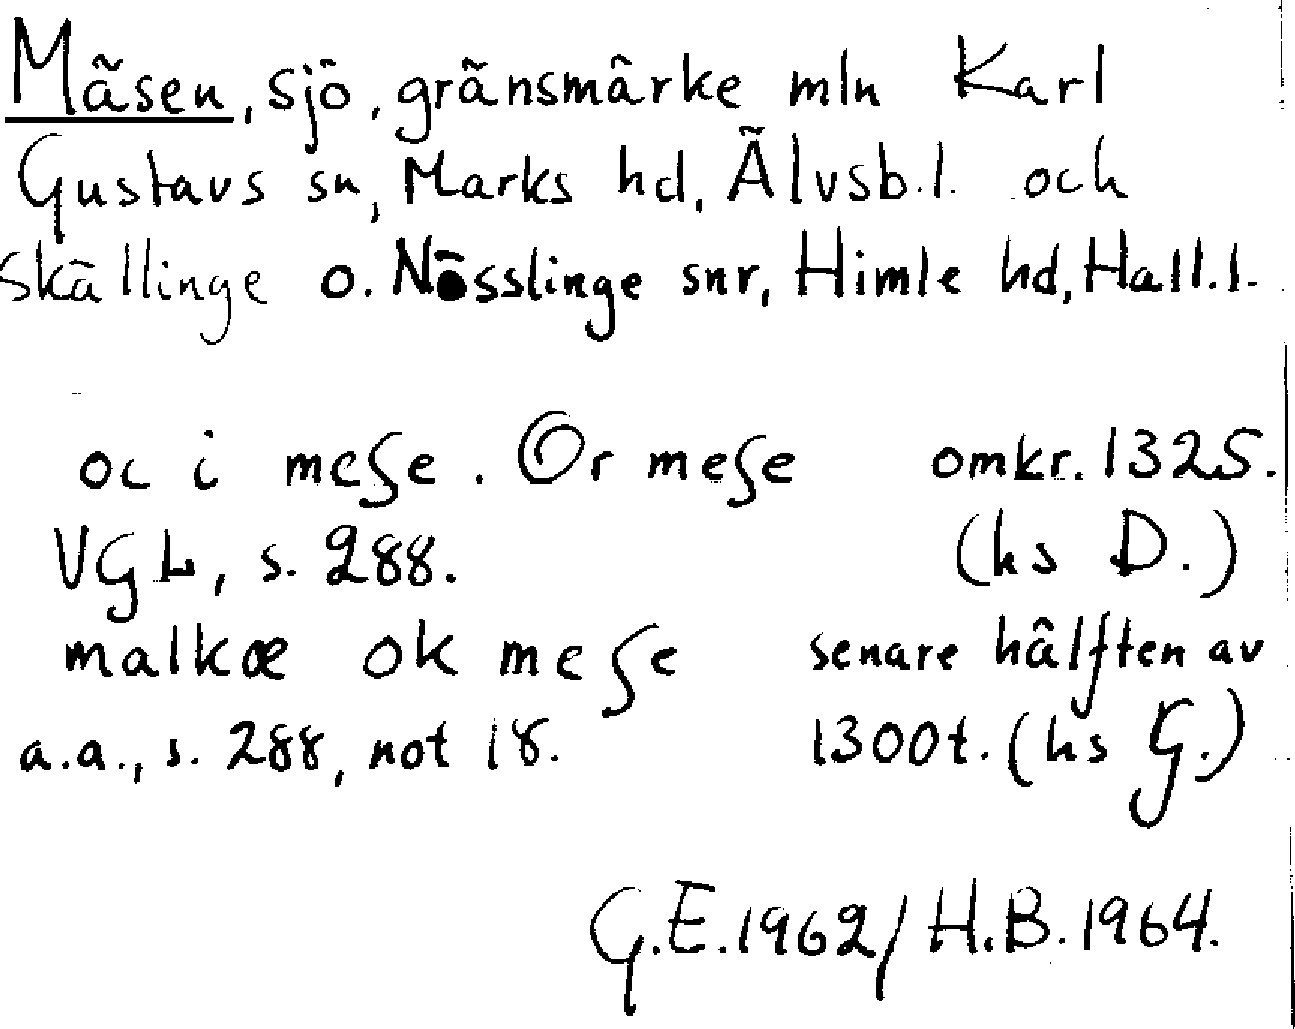 Mäsen, sjö, gränsmärke mln Karl
Gustavs sn, Marks hd, Älvsb.l. och
Skällinge o. Nösslinge snr, Himle hd, Hall.l.
oc i meſe. Or meſe omkr. 1325.
VGL, s. 288. (hs D.)
malkæ ok meſe senare hälften av
a.a., s. 288, not 18. 1300t. (hs G.)
G.E. 1962/H.B. 1964.